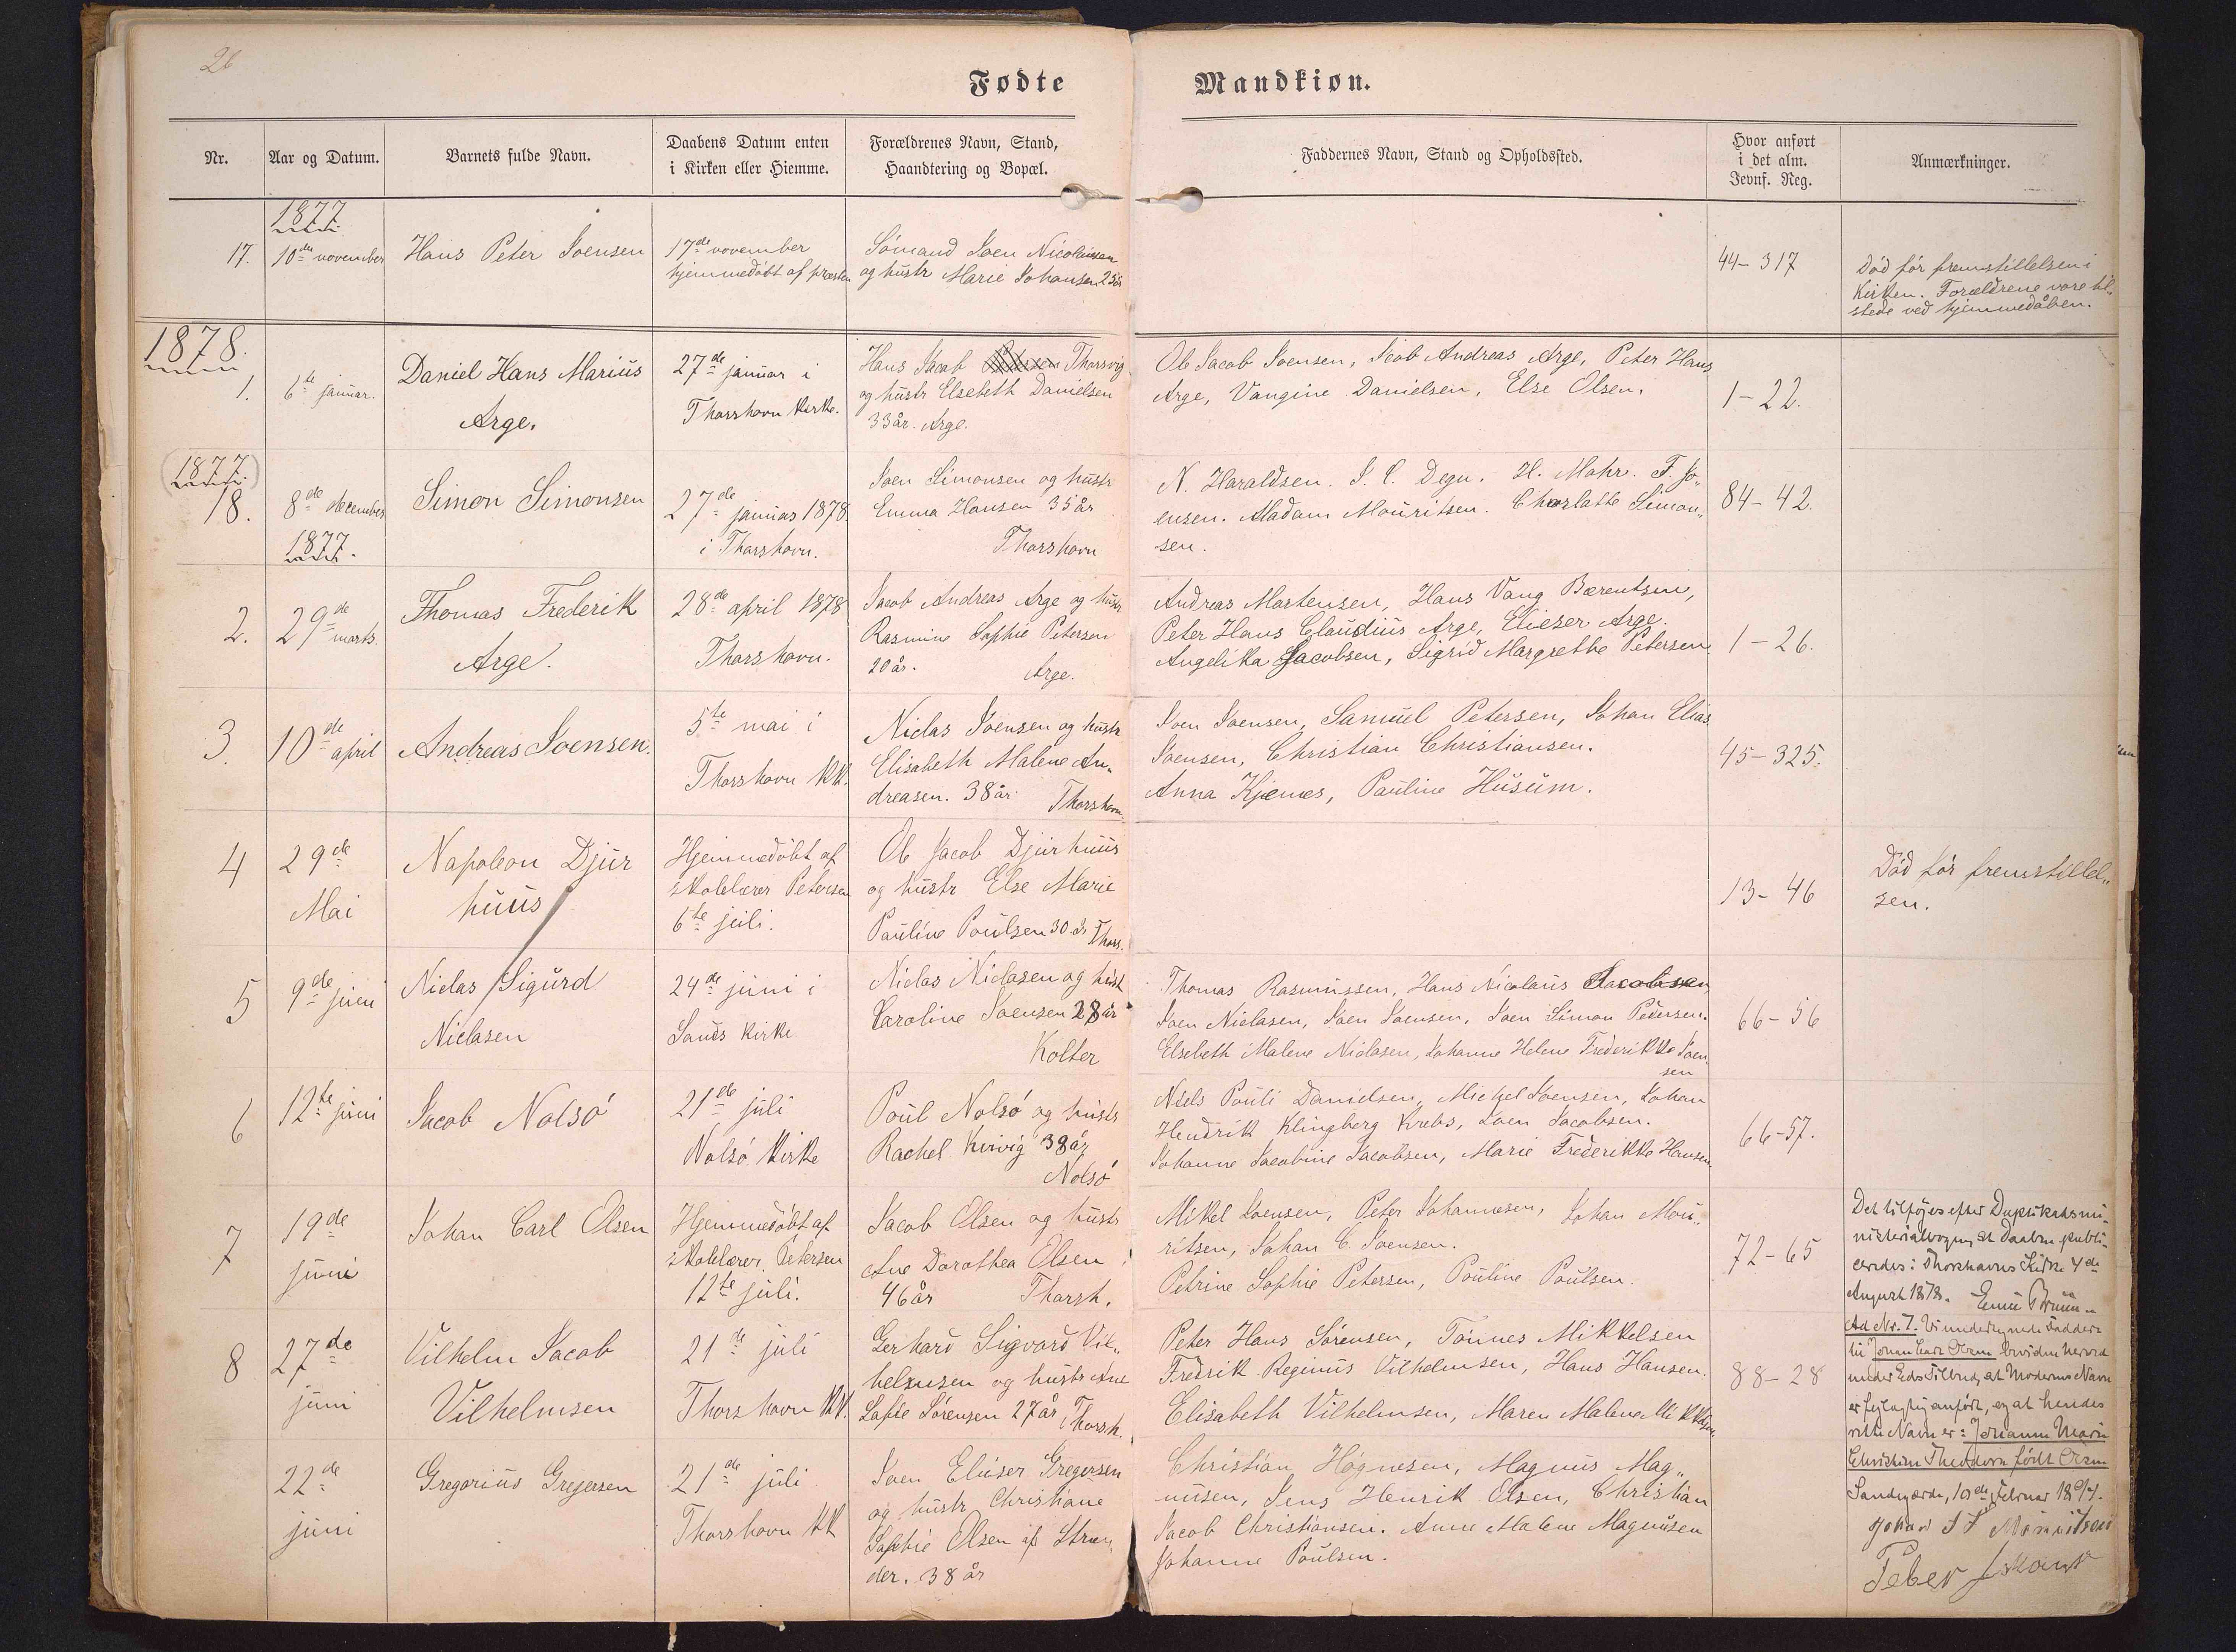 26
Fødte
Mandkiøn.
Nr.
Aar og Datum.
Barnets fulde Navn.
Daabens Datum enten
i Kirken eller Hiemme.
Forældrenes Navn, Stand,
Haandtering og Bopæl.
Faddernes Navn, Stand og Opholdssted.
Hvor anført
i det alm.
Jevnf. Reg.
Anmærkninger.
1877
17.
10de november
Hans Peter Joensen
17de november
hjemmedöbt af præsten
Sömand Joen Nicolaisen
og hustr Marie Johansen 25år
44-317
Död för fremstillelsen i
Kirken. Forældrene vare til-
stede ved hjemmedåben.
1878.
1.
6te januar.
Daniel Hans Marius
Arge.
27de januar i
Thorshavn Kirke.
Hans Jacob Thorsvig
og hustr Elsebeth Danielsen
33år. Arge.
Ole Jacob Joensen, Jacob Andreas Arge, Peter Hans
Arge, Vangine Danielsen, Else Olsen.
1-22.
(1877.)
18.
8de december
1877.
Simon Simonsen
27de januar 1878.
i Thorshavn.
Joen Simonsen og hustr
Emma Hansen 35år
Thorshavn
N. Haraldsen. J. C. Degn. H. Mohr. F. Jo-
ensen. Madam Mouritsen. Charlotte Simon-
sen.
84-42.
2.
29de marts.
Thomas Frederik
Arge.
28de april 1878
Thorshavn.
Jacob Andreas Arge og hustr
Rasmine Sophie Petersen
20år.
Arge.
Andreas Mortensen, Hans Vang Bærentsen,
Peter Hans Claudius Arge, Elieser Arge.
Angelika Jacobsen, Sigrid Margrethe Petersen
1-26.
3.
10de april
Andreas Joensen.
5te mai i
Thorshavn KK.
Niclas Joensen og hustr
Elisabeth Malene An-
dreasen. 38år
Thorshavn
Joen Joensen, Samuel Petersen, Johan Elias
Joensen, Christian Christiansen.
Anna Kjernes, Pauline Husum.
45-325.
4
29de
Mai
Napoleon Djur
huus
Hjemmedöbt af
skolelærer Petersen
6te juli.
Ole Jacob Djurhuus
og hustr Else Marie
Pauline Poulsen 30 år Thors.
13-46
Död för fremstillel-
sen.
5
9de juni
Niclas Sigurd
Niclasen
24de juni i
Sands Kirke
Niclas Niclasen og hust
Caroline Joensen 28år
Kolter
Thomas Rasmussen, Hans Nicolaus Jacobsen,
Joen Niclasen, Joen Joensen, Joen Simon Pedersen.
Elsebeth Malene Niclasen, Johanne Helene Frederikke Joen
sen
66-56
6
12te juni
Jacob Nolsö
21de juli
Nolsö Kirke
Poul Nolsö og hustr
Rachel Kirvig 38år
Nolsö
Niels Pouli Danielsen, Michel Joensen, Johan
Hendrik Klingberg Krebs, Joen Jacobsen.
Johanne Jacobine Jacobsen, Marie Frederikke Hansen
66-57.
7
19de
juni
Johan Carl Olsen
Hjemmedöbt af
skolelærer Petersen
12te juli.
Jacob Olsen og hustr
Ane Dorothea Olsen
46år
Thorsh.
Mikel Joensen, Peter Johannesen, Johan Mou-
ritsen, Johan C. Joensen.
Petrine Sophie Petersen, Pouline Poulsen.
72-65
Det tilföjes efter Duplikatsmi-
nisterialbogen, at Daaben publi-
ceredes i Thorshavns Kirke 4de
August 1878. Emil Bruun
8
27de
juni
Vilhelm Jacob
Vilhelmsen
21de juli
Thorshavn KK.
Gerhard Sigvard Vil-
helmsen og hustr Ane
Sofie Sörensen 27år Thorsh.
Peter Hans Sörensen, Tönnes Mikkelsen
Fredrik Reginus Vilhelmsen, Hans Hansen.
Elisabeth Vilhelmsen, Maren Malene Mikkelsen.
88-28
Ad Nr. 7. Vi undertegnede Faddere
til Johan Carl Olsen bevidne herved
under Eds Tilbud, at Moderens Navn
er fejlagtig anfört, og at hendes
rette Navn er: Johanne Marie
Christine Theodora födt Olsen
22de
juni
Gregorius Gregersen
21de juli
Thorshavn KK
Joen Elieser Gregersen
og hustr Christiane
Sophie Olsen af Stran-
der. 38år
Christian Högnesen, Magnus Mag-
nusen, Jens Henrik Olsen, Christian
Jacob Christiansen. Anne Malene Magnusen
Johanne Poulsen.
Sandegærde, 10de Februar